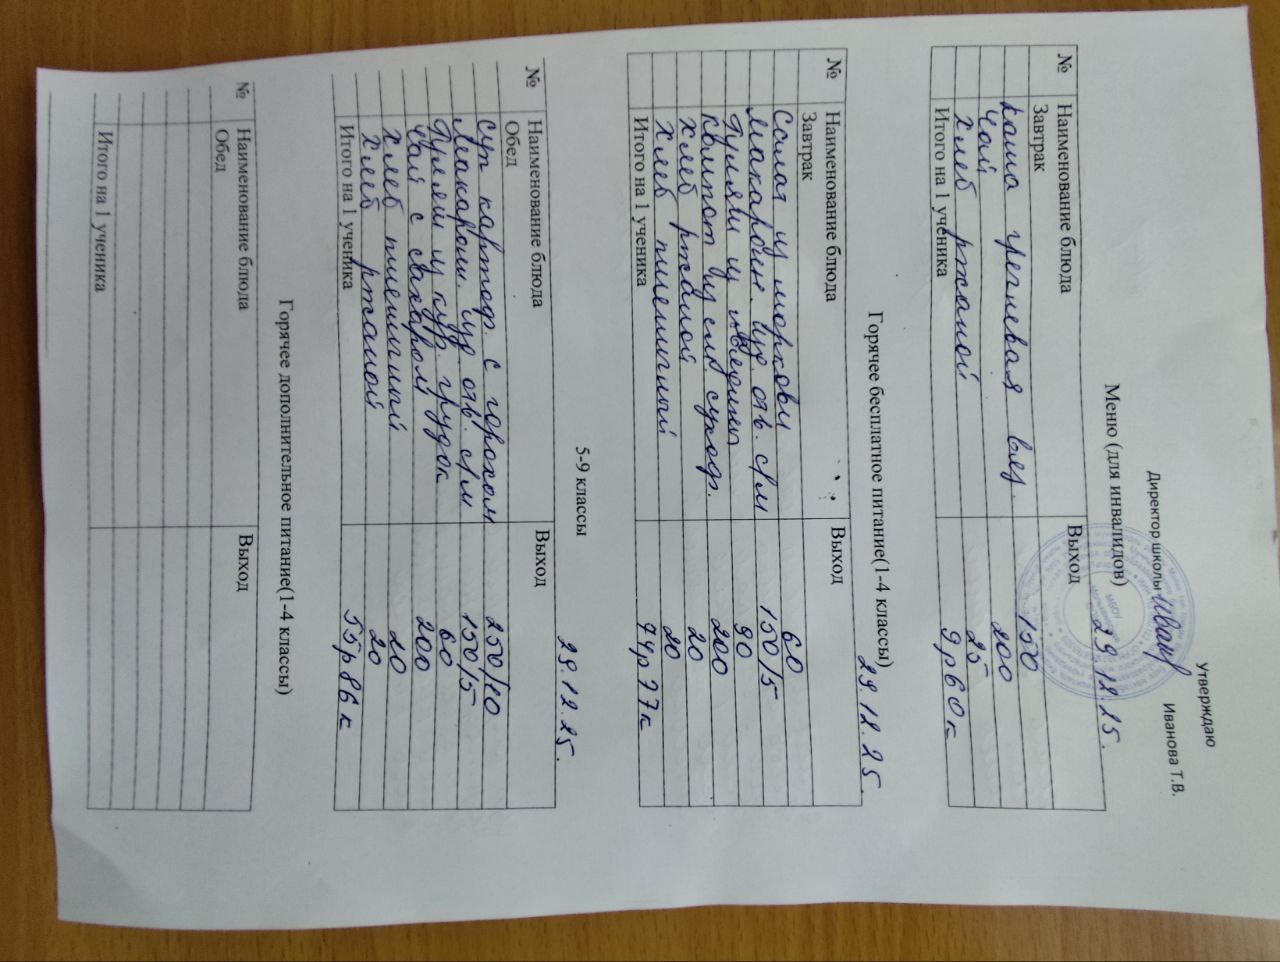 Утверждаю
Директор школы Иванова Т.В.
Меню (для инвалидов)
29.12.25.
№ Наименование блюда Выход
Завтрак
Каша гречневая вяз. 150
Чай 200
Хлеб ржаной 25
Итого на 1 ученика 9р60к
Горячее бесплатное питание(1-4 классы)
29.12.25.
№ Наименование блюда Выход
Завтрак
Салат из моркови 60
Макарон. изд отв. с/м 150/5
Гуляш из 90
компот из см сухоф. 200
хлеб ржаной 20
хлеб пшеничный 20
Итого на 1 ученика 74р77к
5-9 классы
29.12.25.
№ Наименование блюда Выход
Обед
Суп картоф. с горохом 250/10
Макарон. изд отв. с/м 150/5
Гуляш из кур. грудок 60
Чай с сахаром 200
хлеб пшеничный 20
хлеб ржаной 20
Итого на 1 ученика 55р86к
Горячее дополнительное питание(1-4 классы)
№ Наименование блюда Выход
Обед
Итого на 1 ученика